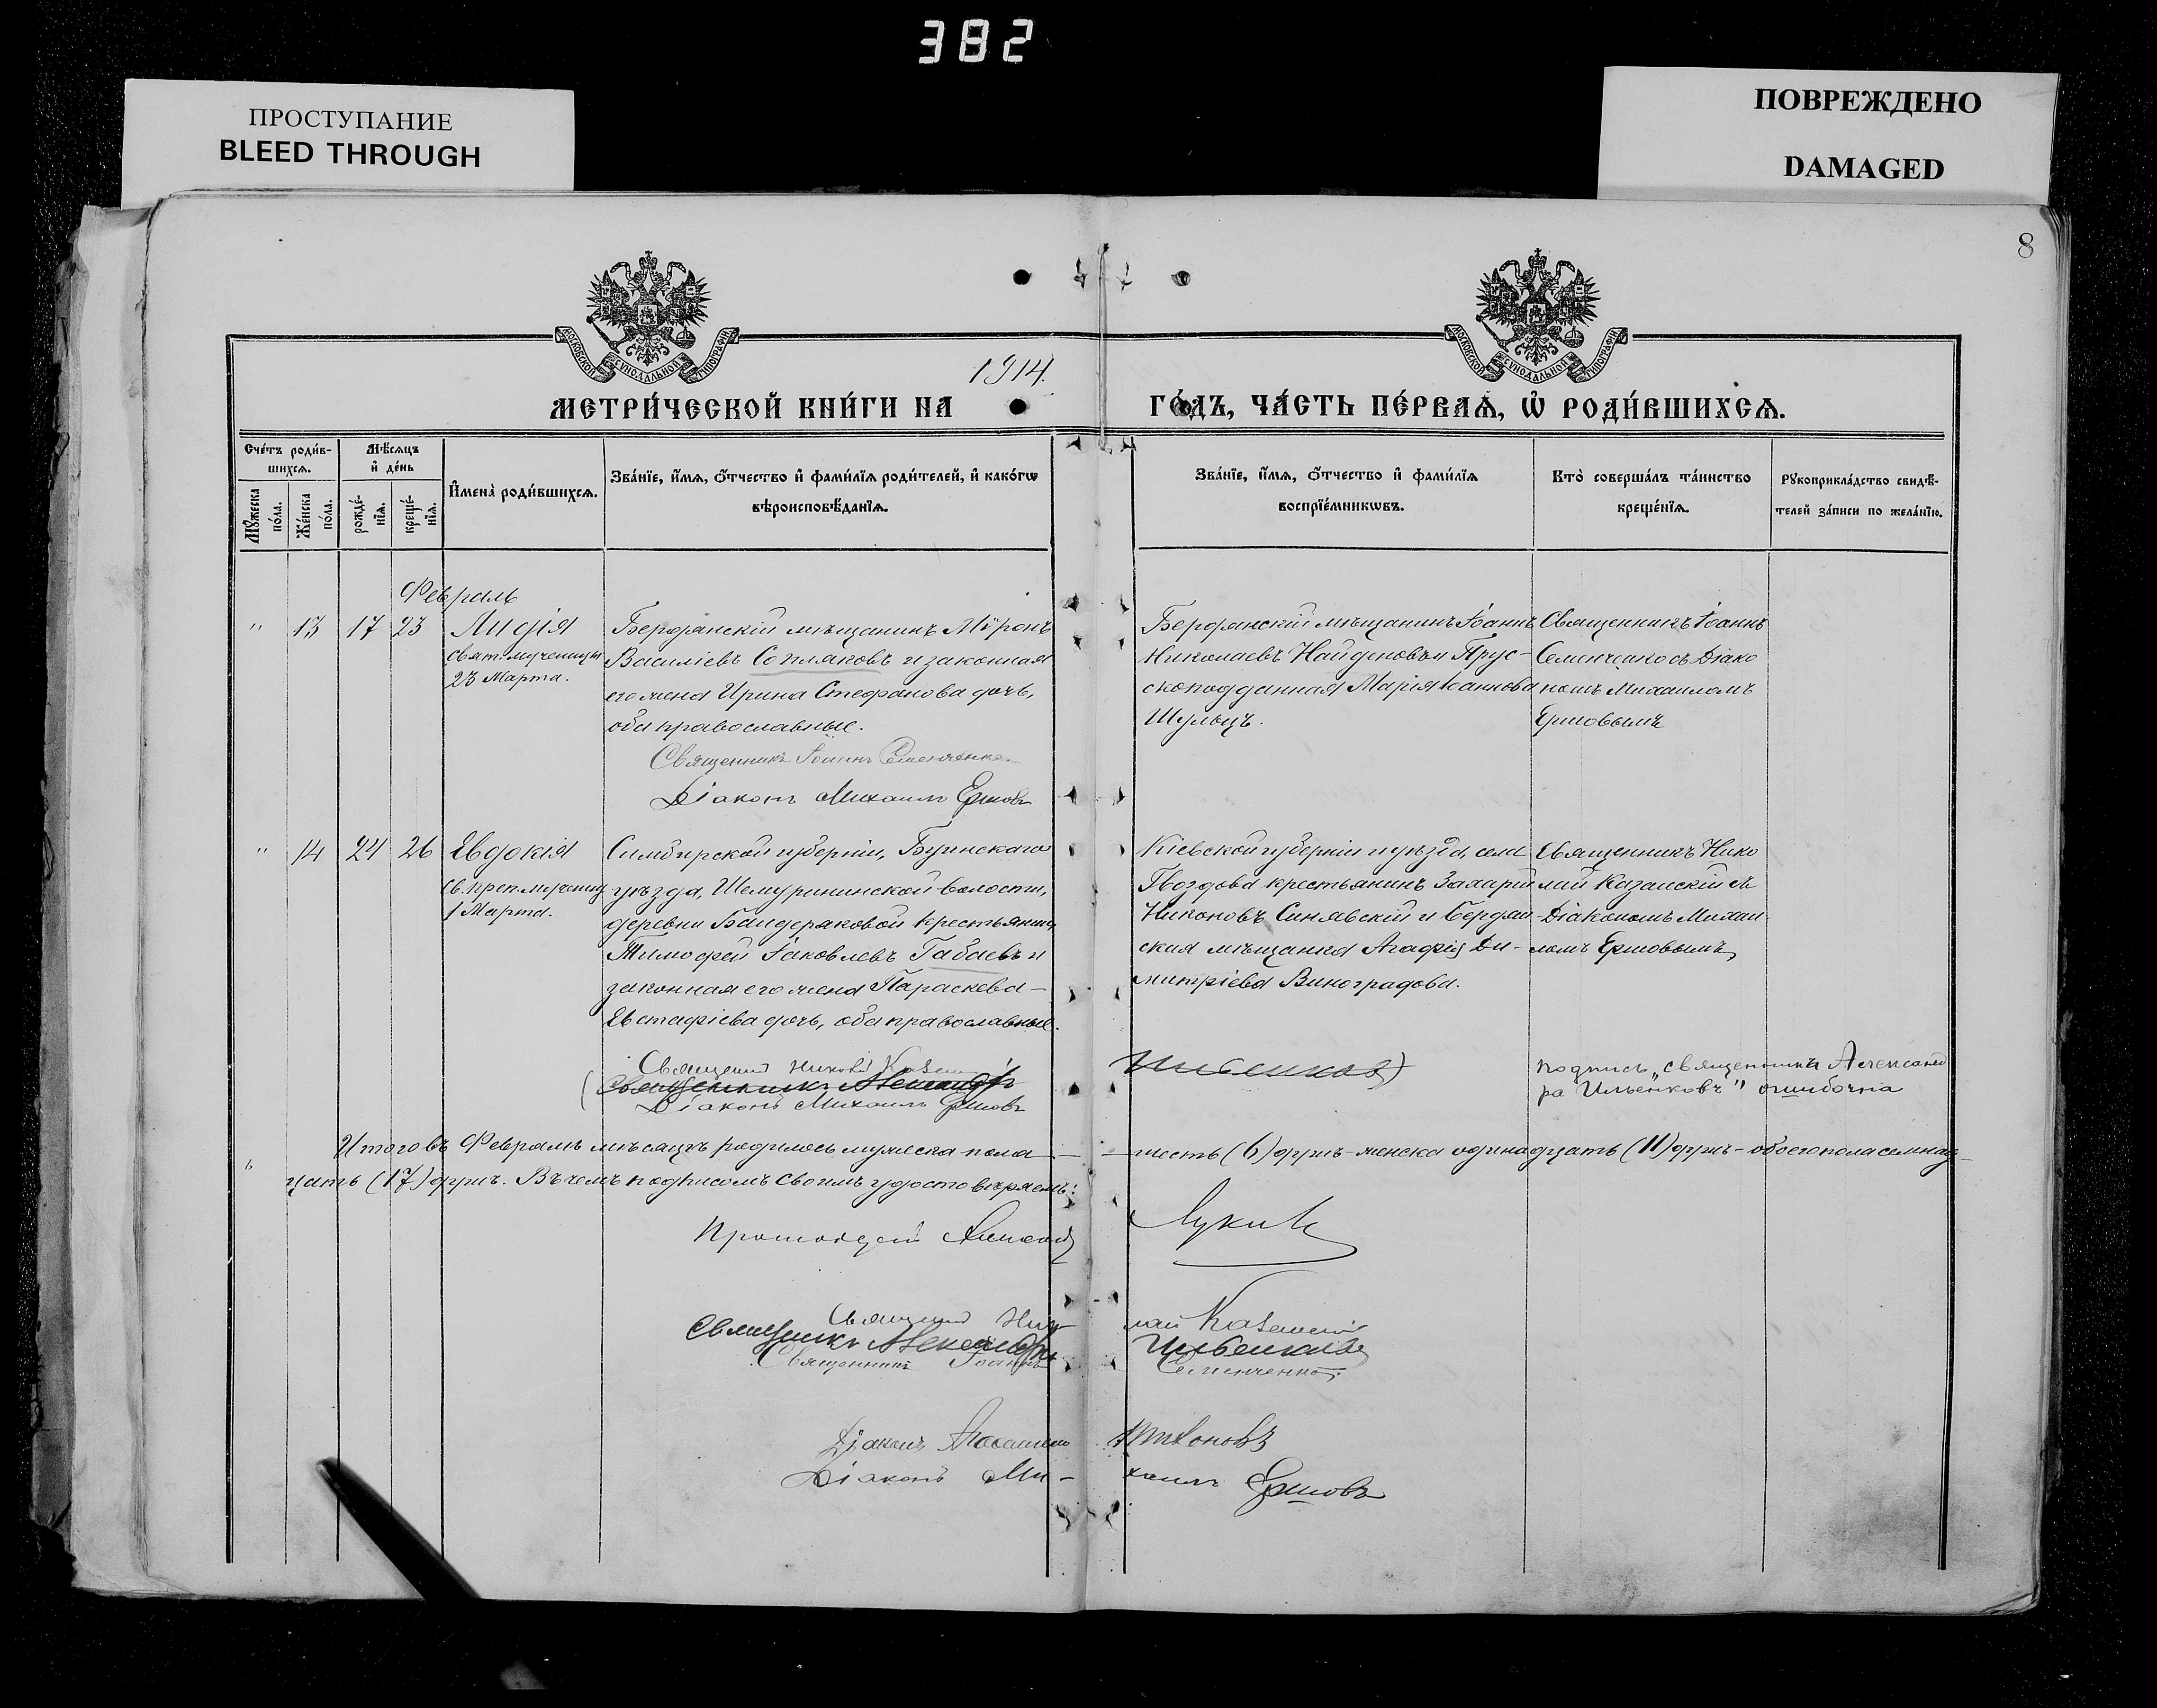 382
ПРОСТУПАНИЕ
BLEED THROUGH
ПОВРЕЖДЕНО
DAMAGED
8
МОСКОВСКОЙ СѴНОДАЛЬНОЙ ТИПОГРАФІИ
МОСКОВСКОЙ СѴНОДАЛЬНОЙ ТИПОГРАФІИ
1914.
МЕТРИ́ЧЕСКОЙ КНИ́ГИ НА ГО́ДЪ, ЧА́СТЬ ПЕ́РВАѦ, Ѡ҆ РОДИ́ВШИХСѦ.
Сче́тъ роди́в-
шихсѧ.
Мѣ́сѧцъ
и҆ де́нь
Мꙋ́жеска
по́ла.
Же́нска
по́ла.
рожде́-
нїѧ.
креще́-
нїѧ.
И҆мена̀ роди́вшихсѧ.
Зва́нїе, и҆́мѧ, ѻ҆́тчество и҆ фами́лїѧ роди́телей, и҆ како́гѡ
вѣроисповѣ́данїѧ.
Зва́нїе, и҆́мѧ, ѻ҆́тчество и҆ фами́лїѧ
воспрїе́мникѡвъ.
Кто̀ соверша́лъ та́инство
креще́нїѧ.
Рꙋкоприкла́дство свидѣ́-
телей за́писи по жела́нїю.
Февраль
" 13 17 23 Лидія
Свят. мученицы
23 Марта.
Бердянскій мѣщанинъ Мѵронъ
Василіевъ Сопляковъ и законная
его жена Ирина Стефанова дочь,
оба православные.
Священникъ Іоаннъ Семенченко
Діаконъ Михаилъ Ершовъ
Бердянскій мѣщанинъ Іоаннъ
Николаевъ Найденовъ и Прус-
скоподданная Марія Іоаннова
Шульцъ.
Священникъ Іоаннъ
Семенченко съ Діако
номъ Михаиломъ
Ершовымъ
" 14 24 26 Евдокія
Св. преп. мучениц
1 Марта.
Симбирской губерніи, Буинскаго
уѣзда, Шемуршинской волости,
деревни Байдеряковой крестьянинъ
Тимофей Іаковлевъ Габаевъ и
законная его жена Параскева -
Евстафіева дочь, оба православные.
Священникъ Николай Казанскій
(Священникъ Александръ
Діаконъ Михаилъ Ершовъ
Кіевской губерніи и уѣзда, села
Гвоздова крестьянинъ Захарій
Никоновъ Синявскій и Бердян-
ская мѣщанка Агафія Ди-
митріева Виноградова.
Ильенковъ)
Священникъ Нико
лай Казанскій съ
Діакономъ Михаи-
ломъ Ершовымъ
подпись „священника Александ
ра Ильенковъ" ошибочна
Итого въ Февралѣ мѣсяцѣ родилось мужеска пола — шесть (6) душъ - женска одинадцать (11) душъ - обоего пола семнад-
цать (17) душъ. Въ чемъ подписомъ своимъ удостовѣряемъ:
Протоіерей Алексѣй
Священникъ Николай Казанскій
Священникъ Александръ Ильенковъ
Священникъ Іоаннъ Семенченко.
Діаконъ Тихоновъ
Діаконъ Ми- хаилъ Ершовъ